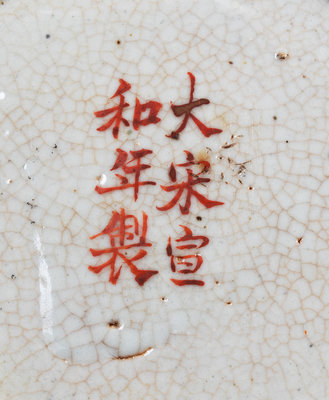 大宋宣
和年製